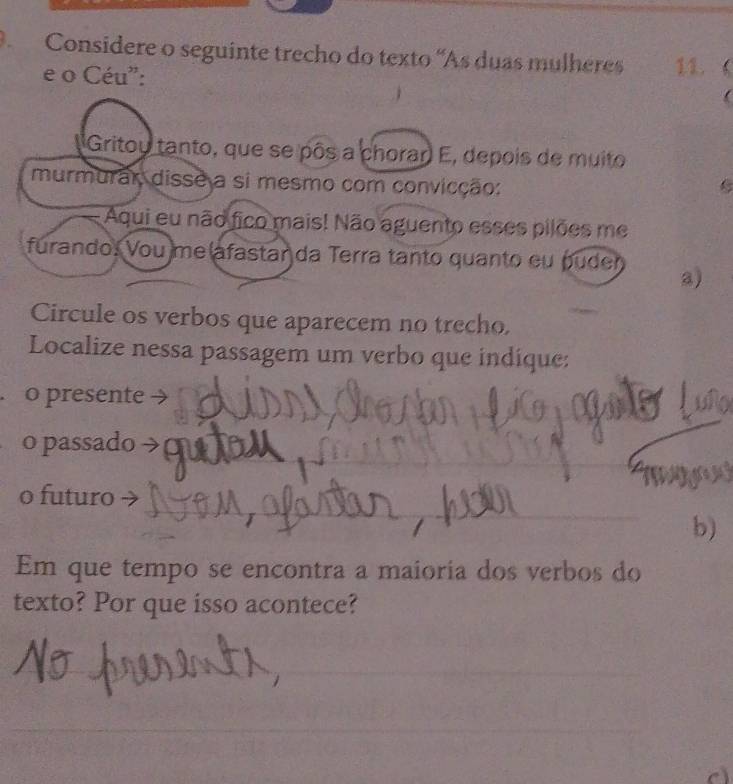 Considere o seguinte trecho do texto “As duas mulheres
e o Céu”:
11.
Gritou tanto, que se pôs a chorar. E, depois de muito
murmurar, disse a si mesmo com convicção:
— Aqui eu não fico mais! Não aguento esses pilões me
furando. Vou me afastar da Terra tanto quanto eu puder.
a)
Circule os verbos que aparecem no trecho.
Localize nessa passagem um verbo que indique:
o presente → fico,
o passado →
o futuro → afastar,
b)
Em que tempo se encontra a maioria dos verbos do
texto? Por que isso acontece?
No presente,
c)